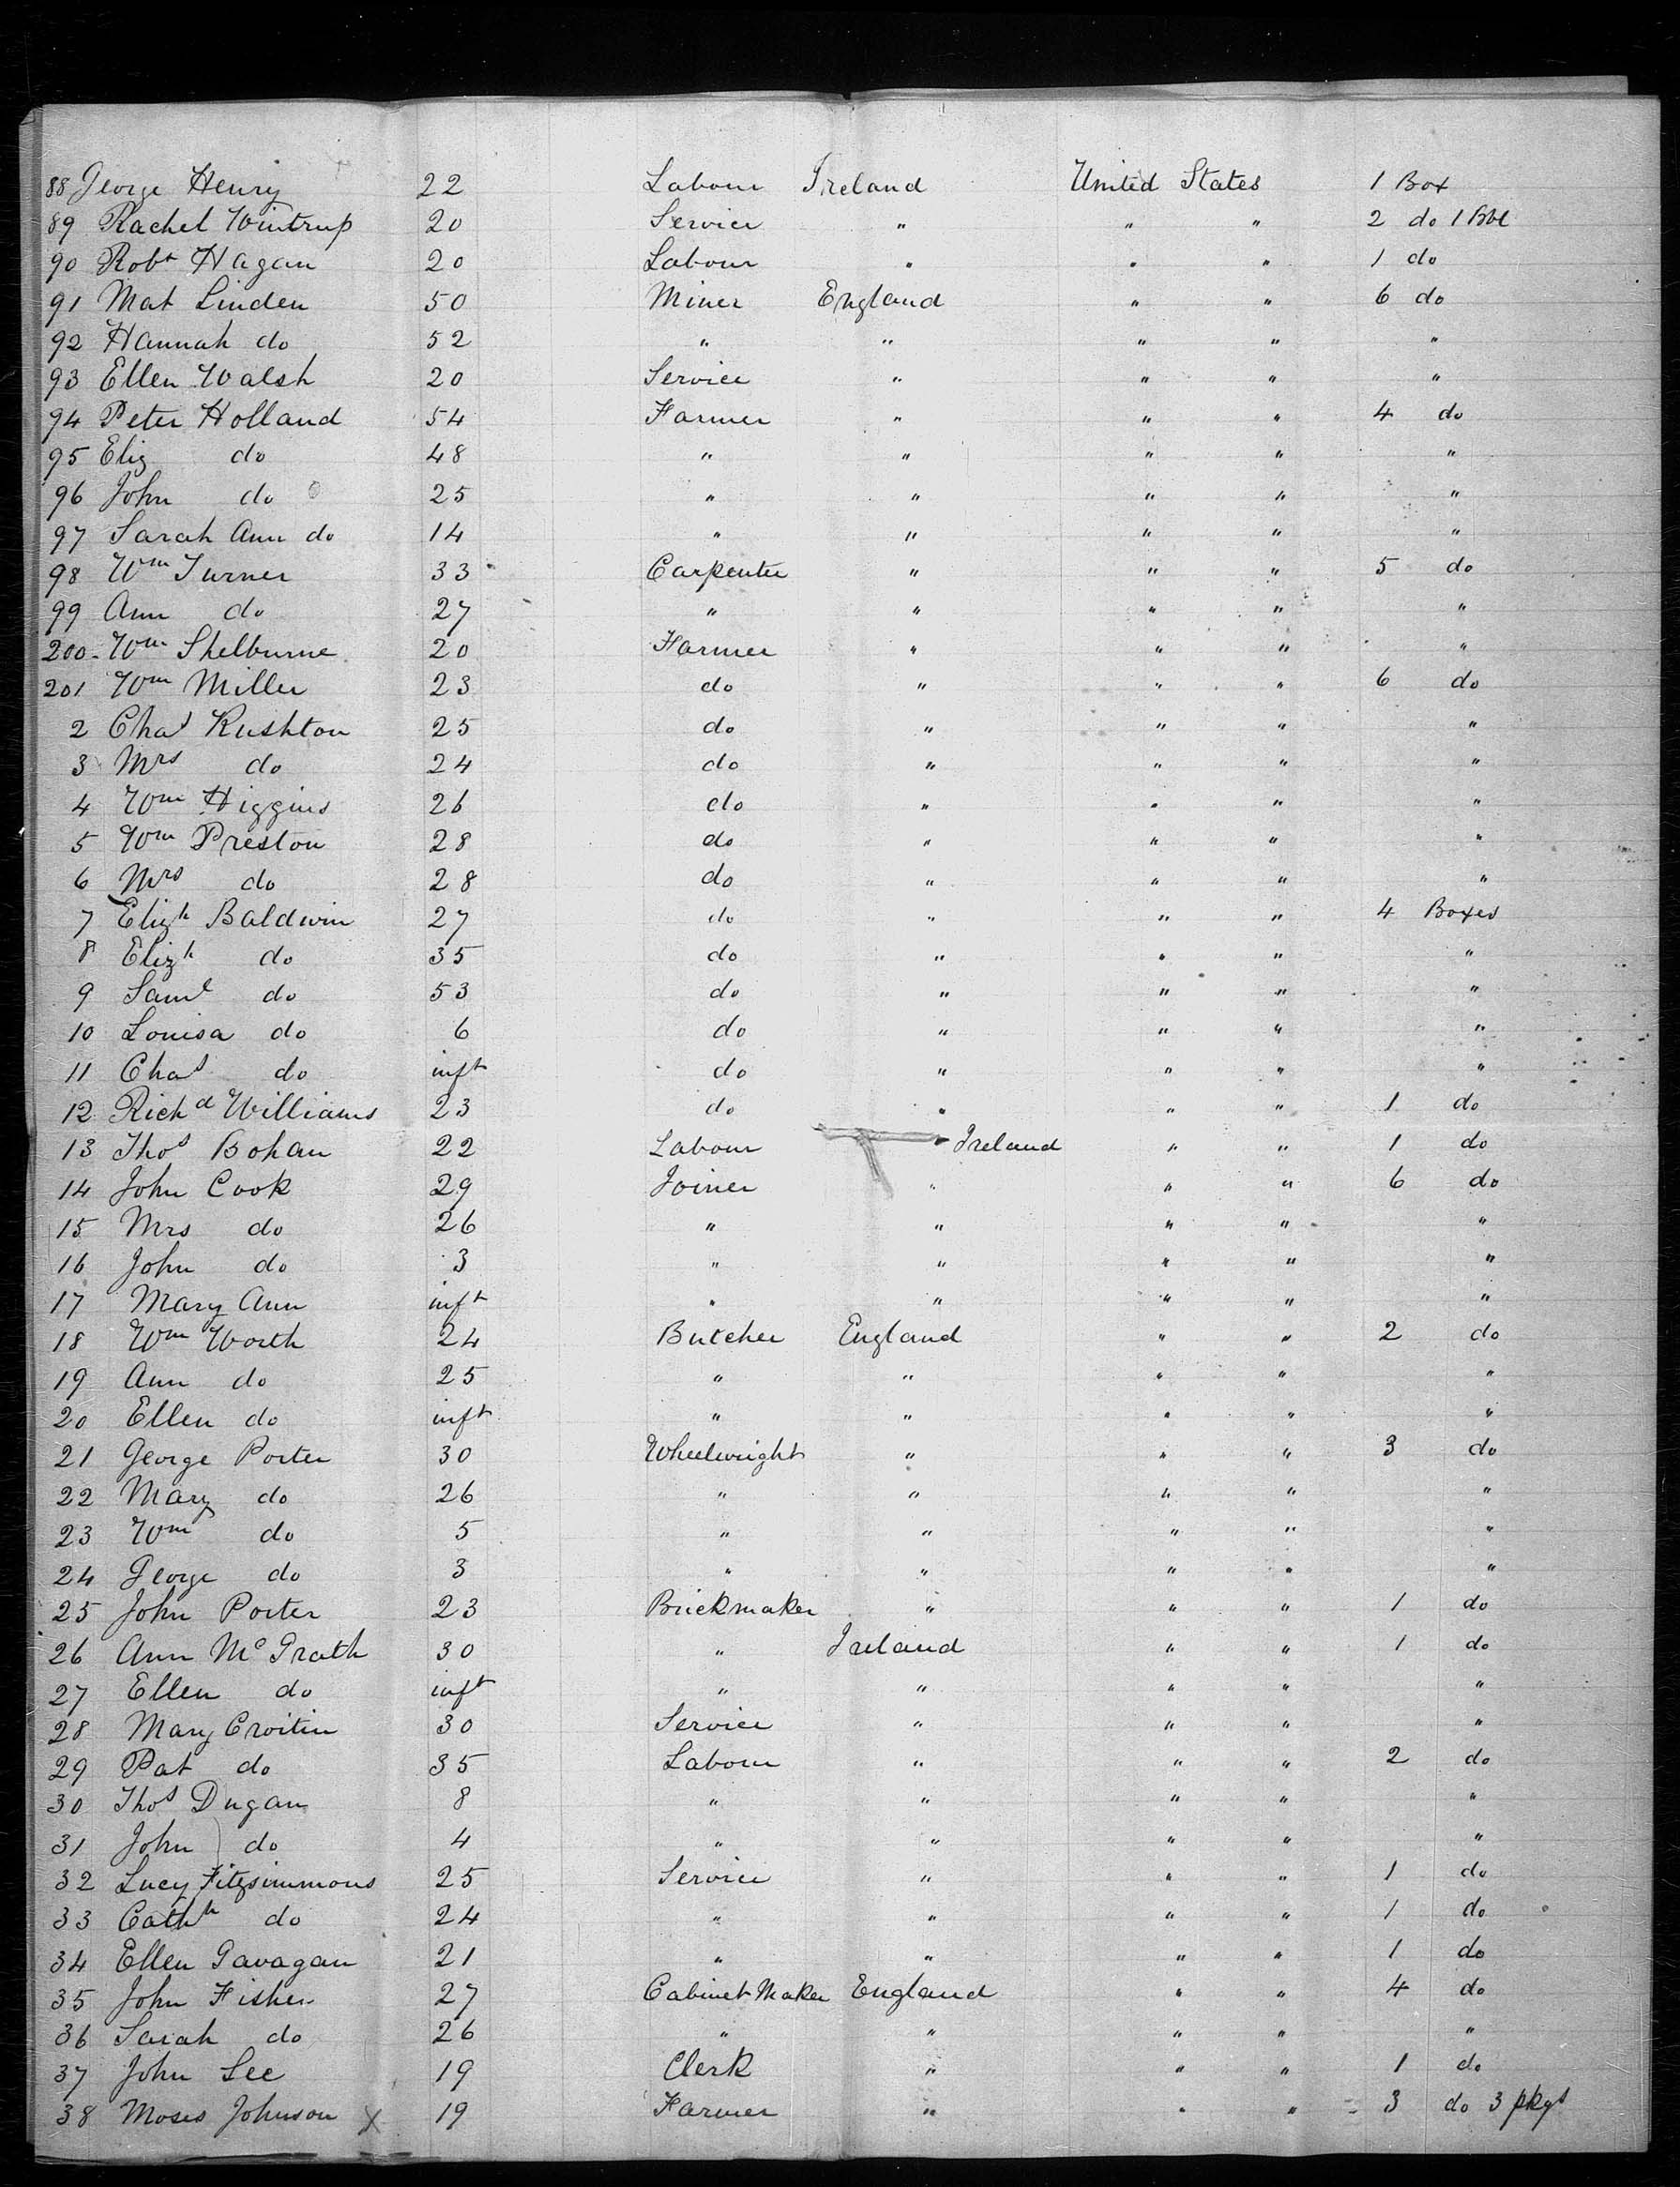 88 George Henry 22 Labour Ireland United States 1 Box
89 Rachel Wintrup 20 Service " " " 2 do 1 Bbl
90 Robt Hagan 20 Labour " " " 1 do
91 Mat Linden 50 Miner England " " 6 do
92 Hannah do 52 " " " " "
93 Ellen Walsh 20 Service " " " "
94 Peter Holland 54 Farmer " " " 4 do
95 Eliz do 48 " " " " "
96 John do 25 " " " " "
97 Sarah Ann do 14 " " " " "
98 Wm Turner 33 Carpenter " " " 5 do
99 Ann do 27 " " " " "
200 Wm Shelburne 20 Farmer " " " "
201 Wm Miller 23 do " " " 6 do
2 Chas Rushton 25 do " " " "
3 Mrs do 24 do " " " "
4 Wm Higgins 26 do " " " "
5 Wm Preston 28 do " " " "
6 Mrs do 28 do " " " "
7 Elizh Baldwin 27 do " " " 4 Boxes
8 Elizh do 35 do " " " "
9 Saml do 53 do " " " "
10 Louisa do 6 do " " " "
11 Chas do inft do " " " "
12 Richd Williams 23 do " " " 1 do
13 Thos Bohan 22 Labour Ireland " " 1 do
14 John Cook 29 Joiner " " " 6 do
15 Mrs do 26 " " " " "
16 John do 3 " " " " "
17 Mary Ann inft " " " " "
18 Wm Worth 24 Butcher England " " 2 do
19 Ann do 25 " " " " "
20 Ellen do inft " " " " "
21 George Porter 30 Wheelwright " " " 3 do
22 Mary do 26 " " " " "
23 Wm do 5 " " " " "
24 George do 3 " " " " "
25 John Porter 23 Brickmaker " " " 1 do
26 Ann McGrath 30 " Ireland " " 1 do
27 Ellen do inft " " " " "
28 Mary Croitin 30 Service " " " "
29 Pat do 35 Labour " " " 2 do
30 Thos Dugan 8 " " " " "
31 John do 4 " " " " "
32 Lucy Fitzsimmons 25 Service " " " 1 do
33 Cathh do 24 " " " " 1 do
34 Ellen Gavagan 21 " " " " 1 do
35 John Fisher 27 Cabinet Maker England " " 4 do
36 Sarah do 26 " " " " "
37 John Lee 19 Clerk " " " 1 do
38 Moses Johnson X 19 Farmer " " " 3 do 3 pkgs